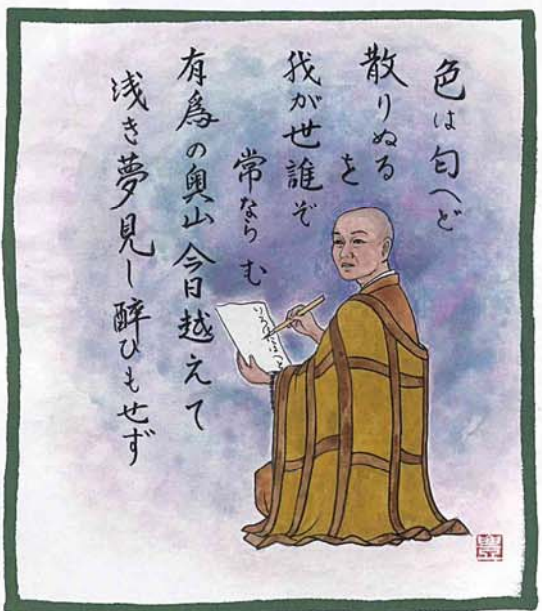 色は匂へど
散りぬるを
我が世誰ぞ
常ならむ
有爲の奥山今日越えて
浅き夢見し酔ひもせず